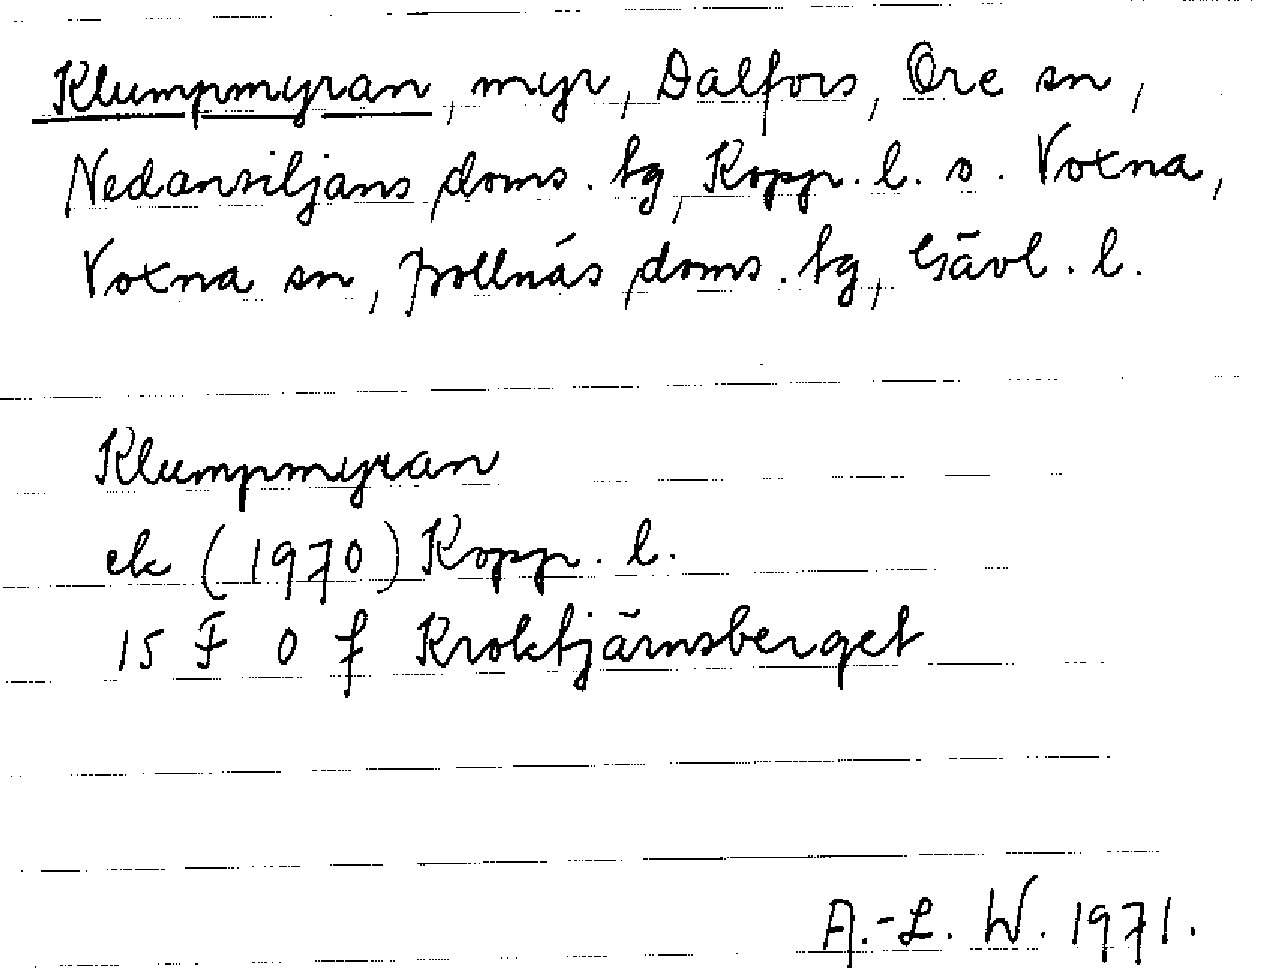 Klumpmyran, myr, Dalfors, Ore sn,
Nedansiljans doms. tg, Kopp. l. o. Voxna,
Voxna sn, Bollnäs doms. tg, Gävl. l.
Klumpmyran
ek (1970) Kopp. l.
15 F 0 f Kroktjärnsberget
A.-L. W. 1971.